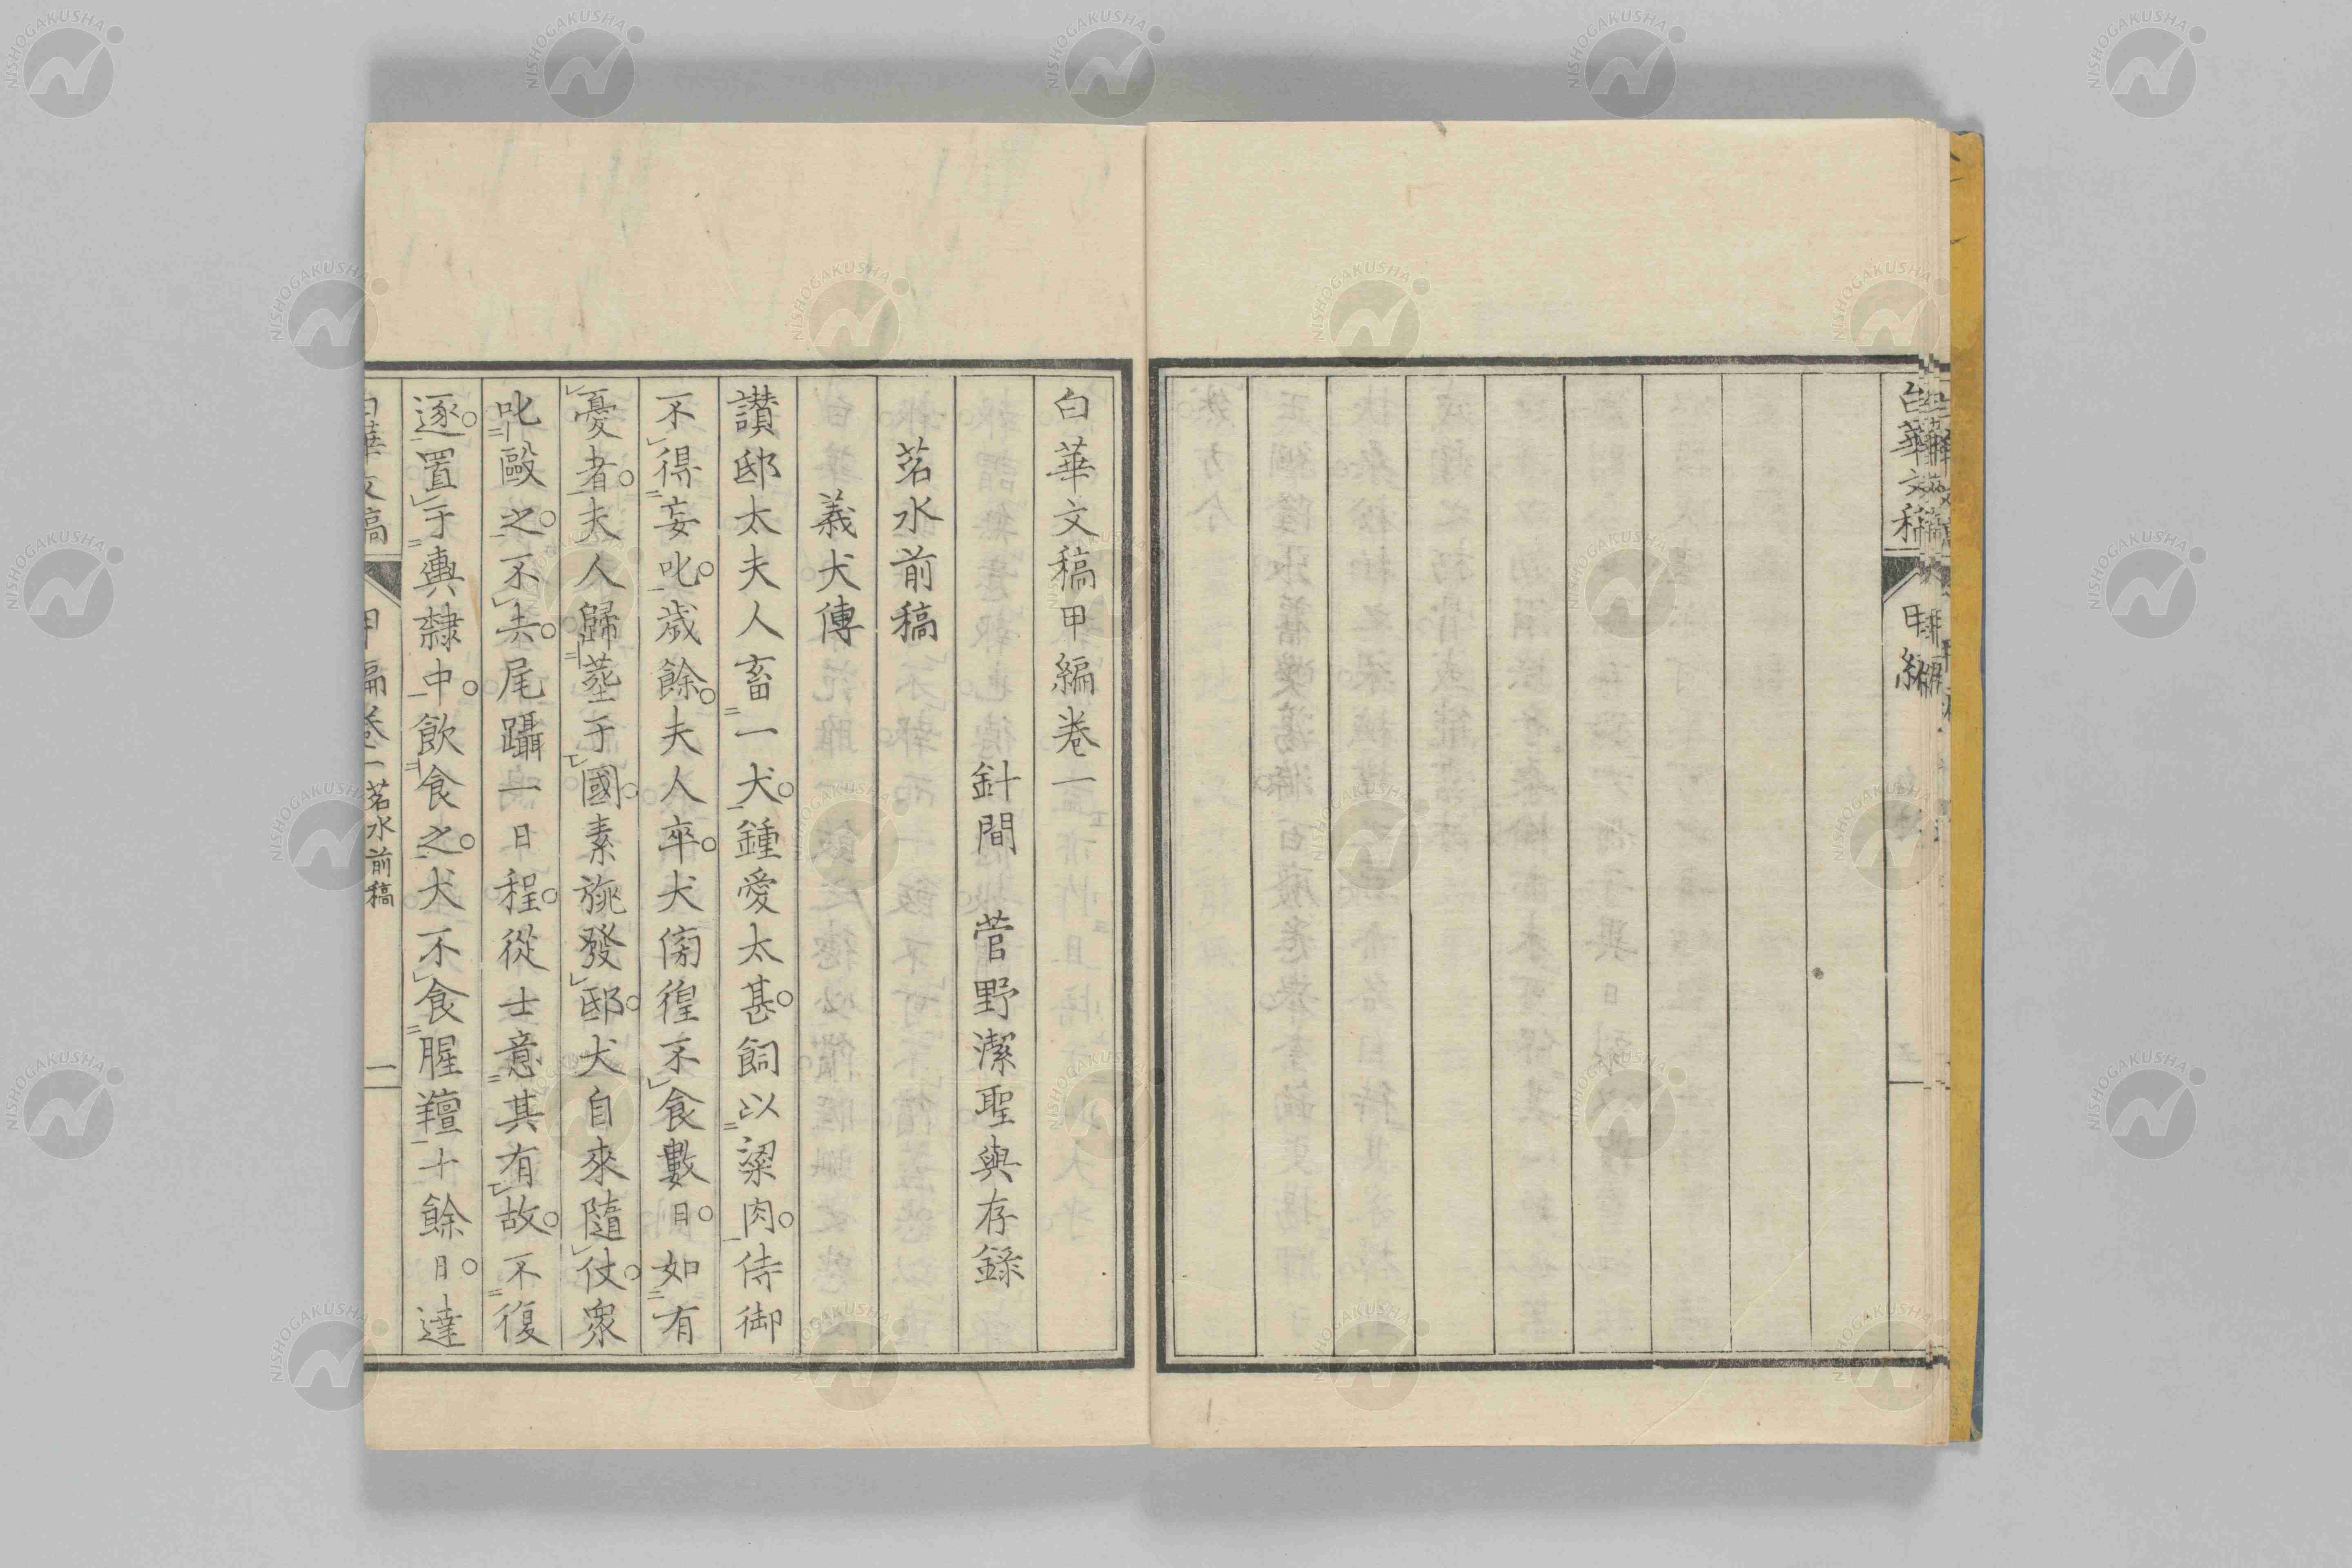 白華文稿 甲編
白華文稿甲編卷一
針間 菅野潔聖與存錄
茗水前稿
義犬傳
讃邸太夫人畜一犬。鍾愛太甚。飼以粱肉。侍御
不得妄叱。歲餘。夫人卒。犬傍徨不食數日。如有
憂者。夫人歸葬于國。素旐發邸。犬自來隨仗。衆
叱毆之。不去。尾躡一日程。從士意其有故。不復
逐。置于輿隸中。飲食之。犬不食腥羶十餘日。達
白華文稿 甲編卷一 茗水前稿 一
NISHOGAKUSHA